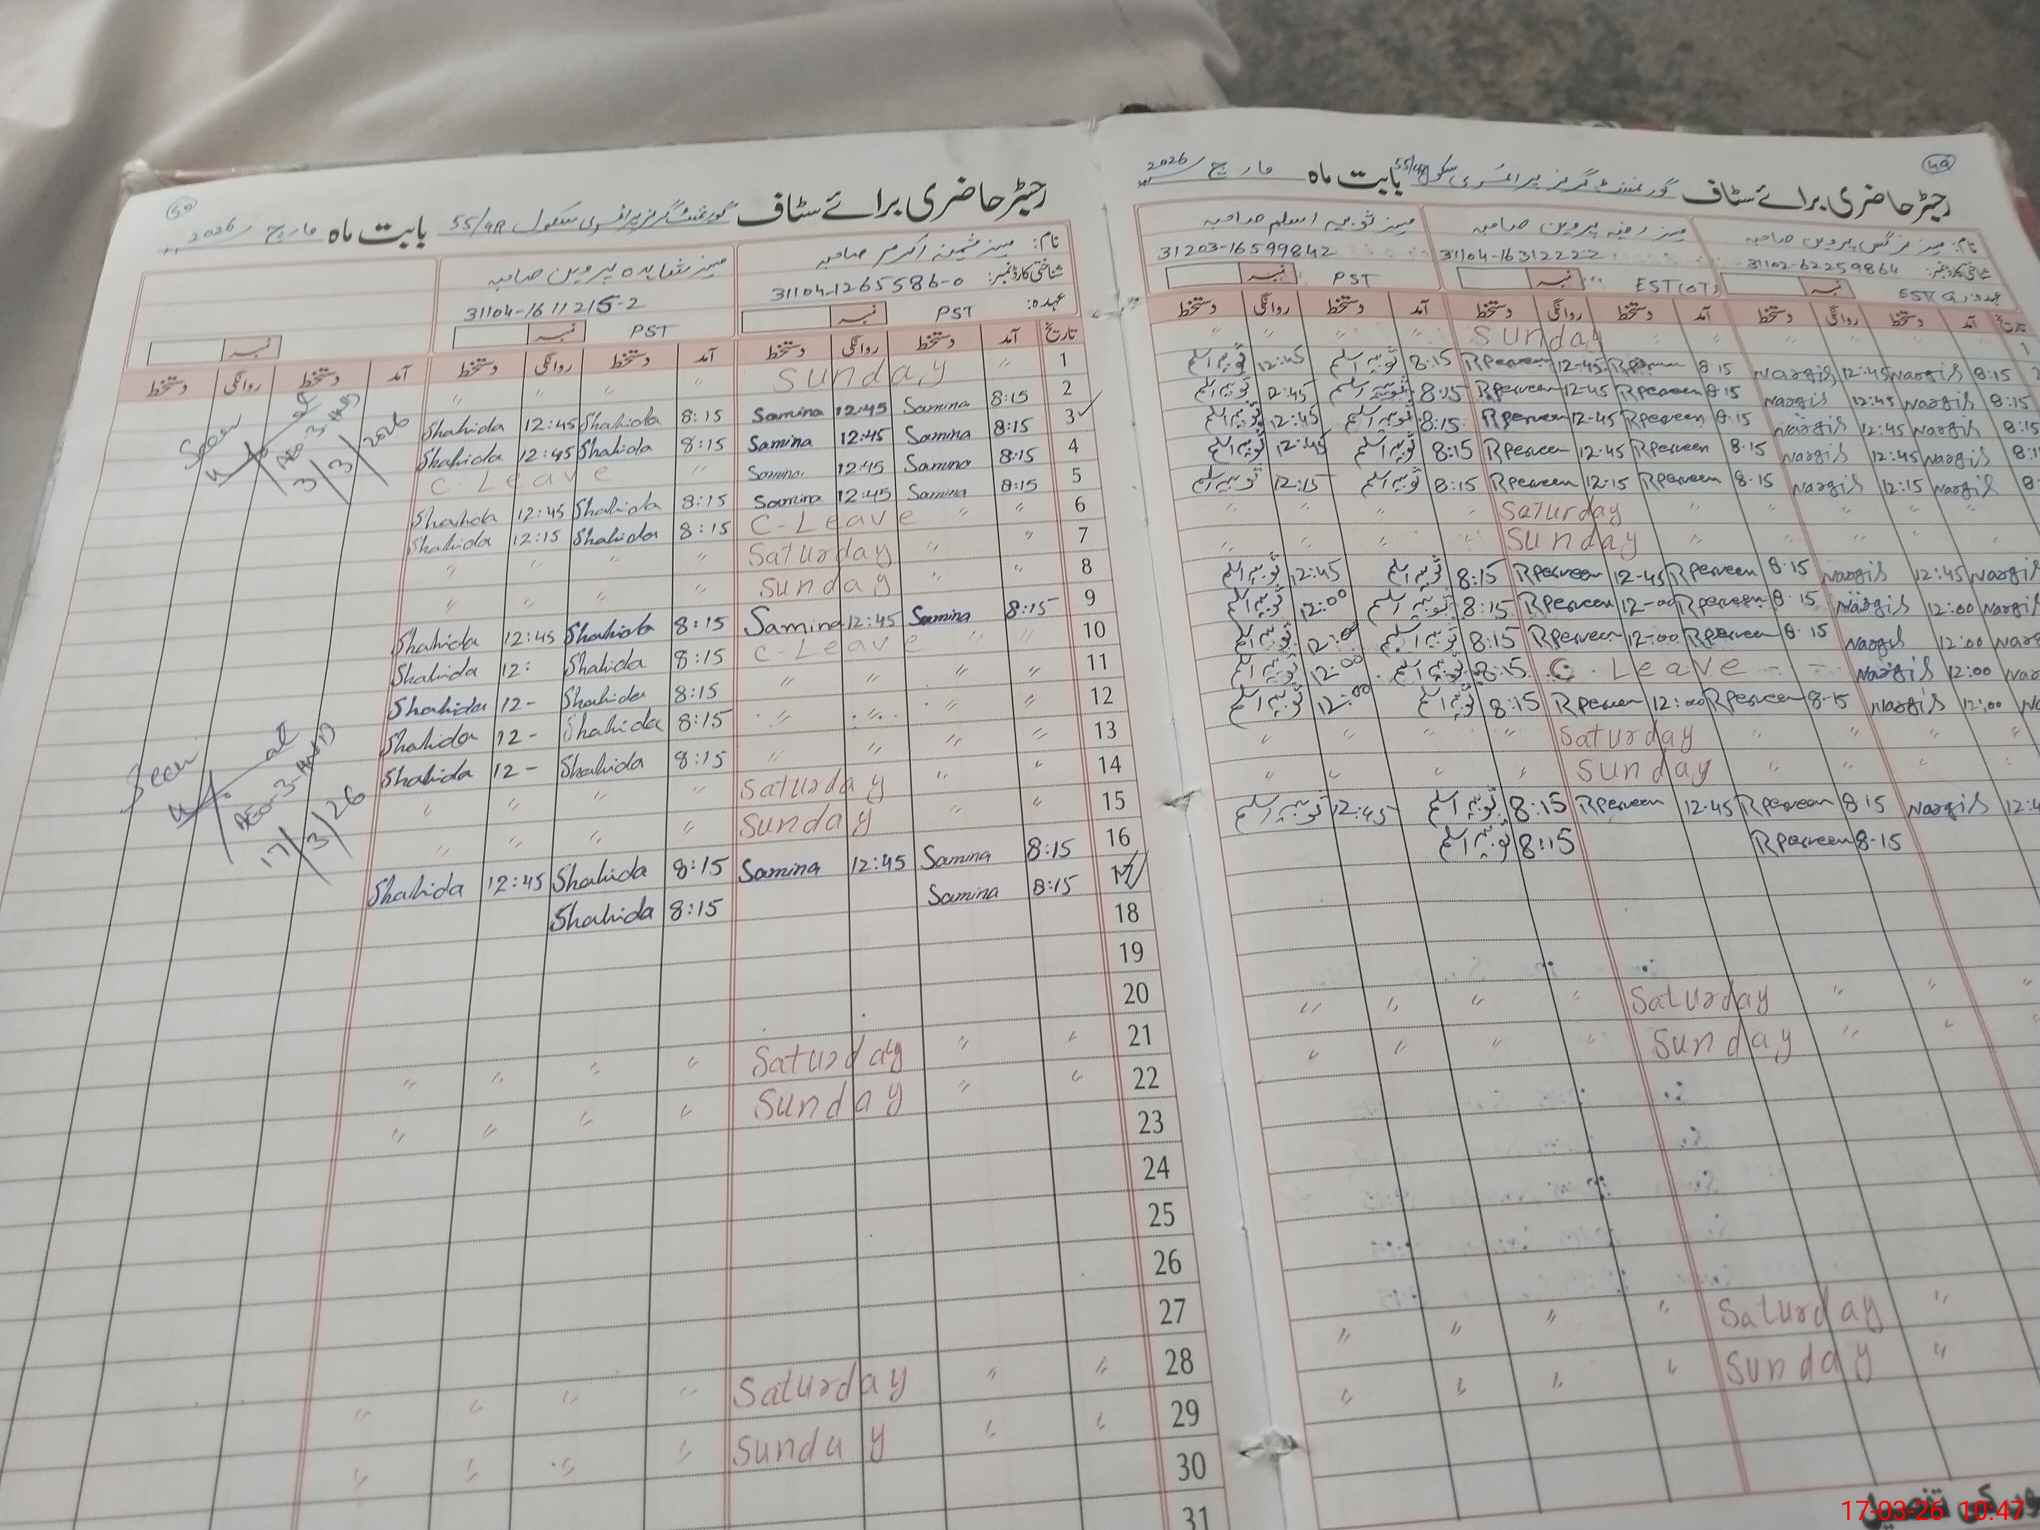 50
رجسٹر حاضری برائے سٹاف گورنمنٹ گرلز پرائمری سکول 55/4R بابت ماہ مارچ 2026
نام: مسز ثمینہ اکرم صاحبہ
مسز شاہدہ پروین صاحبہ
شناختی کارڈ نمبر: 31104-1265586-0
31104-1611215-2
عہدہ: PST
PST
نمبر نمبر نمبر
تاریخ آمد دستخط روانگی دستخط آمد دستخط روانگی دستخط آمد دستخط روانگی دستخط
1 〃 Sunday 〃 〃 〃
2 8:15 Samina 12:45 Samina 8:15 Shahida 12:45 Shahida
3 8:15 Samina 12:45 Samina 8:15 Shahida 12:45 Shahida
4 8:15 Samina 12:45 Samina 〃 C-Leave
5 8:15 Samina 12:45 Samina 8:15 Shahida 12:45 Shahida
6 〃 〃 C-Leave 8:15 Shahida 12:15 Shahida
7 〃 〃 Saturday 〃 〃 〃 〃
8 〃 〃 Sunday 〃 〃 〃 〃
9 8:15 Samina 12:45 Samina 8:15 Shahida 12:45 Shahida
10 〃 〃 C-Leave 8:15 Shahida 12: Shahida
11 〃 〃 〃 〃 8:15 Shahida 12- Shahida
12 〃 〃 〃 〃 8:15 Shahida 12- Shahida
13 〃 〃 〃 〃 8:15 Shahida 12- Shahida
14 〃 〃 Saturday 〃 〃 〃 〃
15 〃 〃 Sunday 〃 〃 〃 〃
16 8:15 Samina 12:45 Samina 8:15 Shahida 12:45 Shahida
17 8:15 Samina 8:15 Shahida
18
19
20
21 〃 〃 Saturday 〃 〃 〃 〃
22 〃 〃 Sunday 〃 〃 〃 〃
23
24
25
26
27
28 〃 〃 Saturday 〃 〃 〃 〃
29 〃 〃 Sunday 〃 〃 〃 〃
30
31
Seen
AEO-3
3/3/2026
Seen
AEO-3
17/3/26
49
رجسٹر حاضری برائے سٹاف گورنمنٹ گرلز پرائمری سکول 55/4R بابت ماہ مارچ 2026
نام: مسز نرگس پروین صاحبہ
مسز رضیہ پروین صاحبہ
مسز ثوبیہ اسلم صاحبہ
شناختی کارڈ نمبر: 31102-62259864
31104-16312222
31203-16599842
عہدہ: EST
EST(OT)
PST
نمبر نمبر نمبر
تاریخ آمد دستخط روانگی دستخط آمد دستخط روانگی دستخط آمد دستخط روانگی دستخط
1 Sunday 〃 〃 〃 〃
2 8:15 Nargis 12:45 Nargis 8:15 RPerveen 12-45 RPerveen 8:15 ثوبیہ اسلم 12:45 ثوبیہ اسلم
8:15 Nargis 12:45 Nargis 8:15 RPerveen 12-45 RPerveen 8:15 ثوبیہ اسلم 12:45 ثوبیہ اسلم
8:15 Nargis 12:45 Nargis 8:15 RPerveen 12-45 RPerveen 8:15 ثوبیہ اسلم 12:45 ثوبیہ اسلم
Nargis 12:45 Nargis 8:15 RPerveen 12-45 RPerveen 8:15 ثوبیہ اسلم 12:45 ثوبیہ اسلم
Nargis 12:15 Nargis 8-15 RPerveen 12-15 RPerveen 8:15 ثوبیہ اسلم 12:15 ثوبیہ اسلم
〃 〃 〃 Saturday 〃 〃 〃 〃
〃 〃 〃 Sunday 〃 〃 〃 〃
Nargis 12:45 Nargis 8-15 RPerveen 12-45 RPerveen 8:15 ثوبیہ اسلم 12:45 ثوبیہ اسلم
Nargis 12:00 Nargis 8-15 RPerveen 12-00 RPerveen 8:15 ثوبیہ اسلم 12:00 ثوبیہ اسلم
12:00 Nargis 8-15 RPerveen 12-00 RPerveen 8:15 ثوبیہ اسلم 12:00 ثوبیہ اسلم
12:00 Nargis C-Leave 8:15 ثوبیہ اسلم 12:00 ثوبیہ اسلم
12:00 Nargis 8-15 RPerveen 12:00 RPerveen 8:15 ثوبیہ اسلم 12:00 ثوبیہ اسلم
〃 〃 Saturday 〃 〃 〃 〃
〃 〃 Sunday 〃 〃 〃 〃
Nargis 8-15 RPerveen 12.45 RPerveen 8:15 ثوبیہ اسلم 12:45 ثوبیہ اسلم
8-15 RPerveen 8:15 ثوبیہ اسلم
〃 〃 Saturday 〃 〃 〃 〃
〃 〃 Sunday 〃 〃 〃 〃
〃 Saturday 〃 〃 〃 〃
〃 Sunday 〃 〃 〃 〃
کی تفصیل
17-03-26 10:47